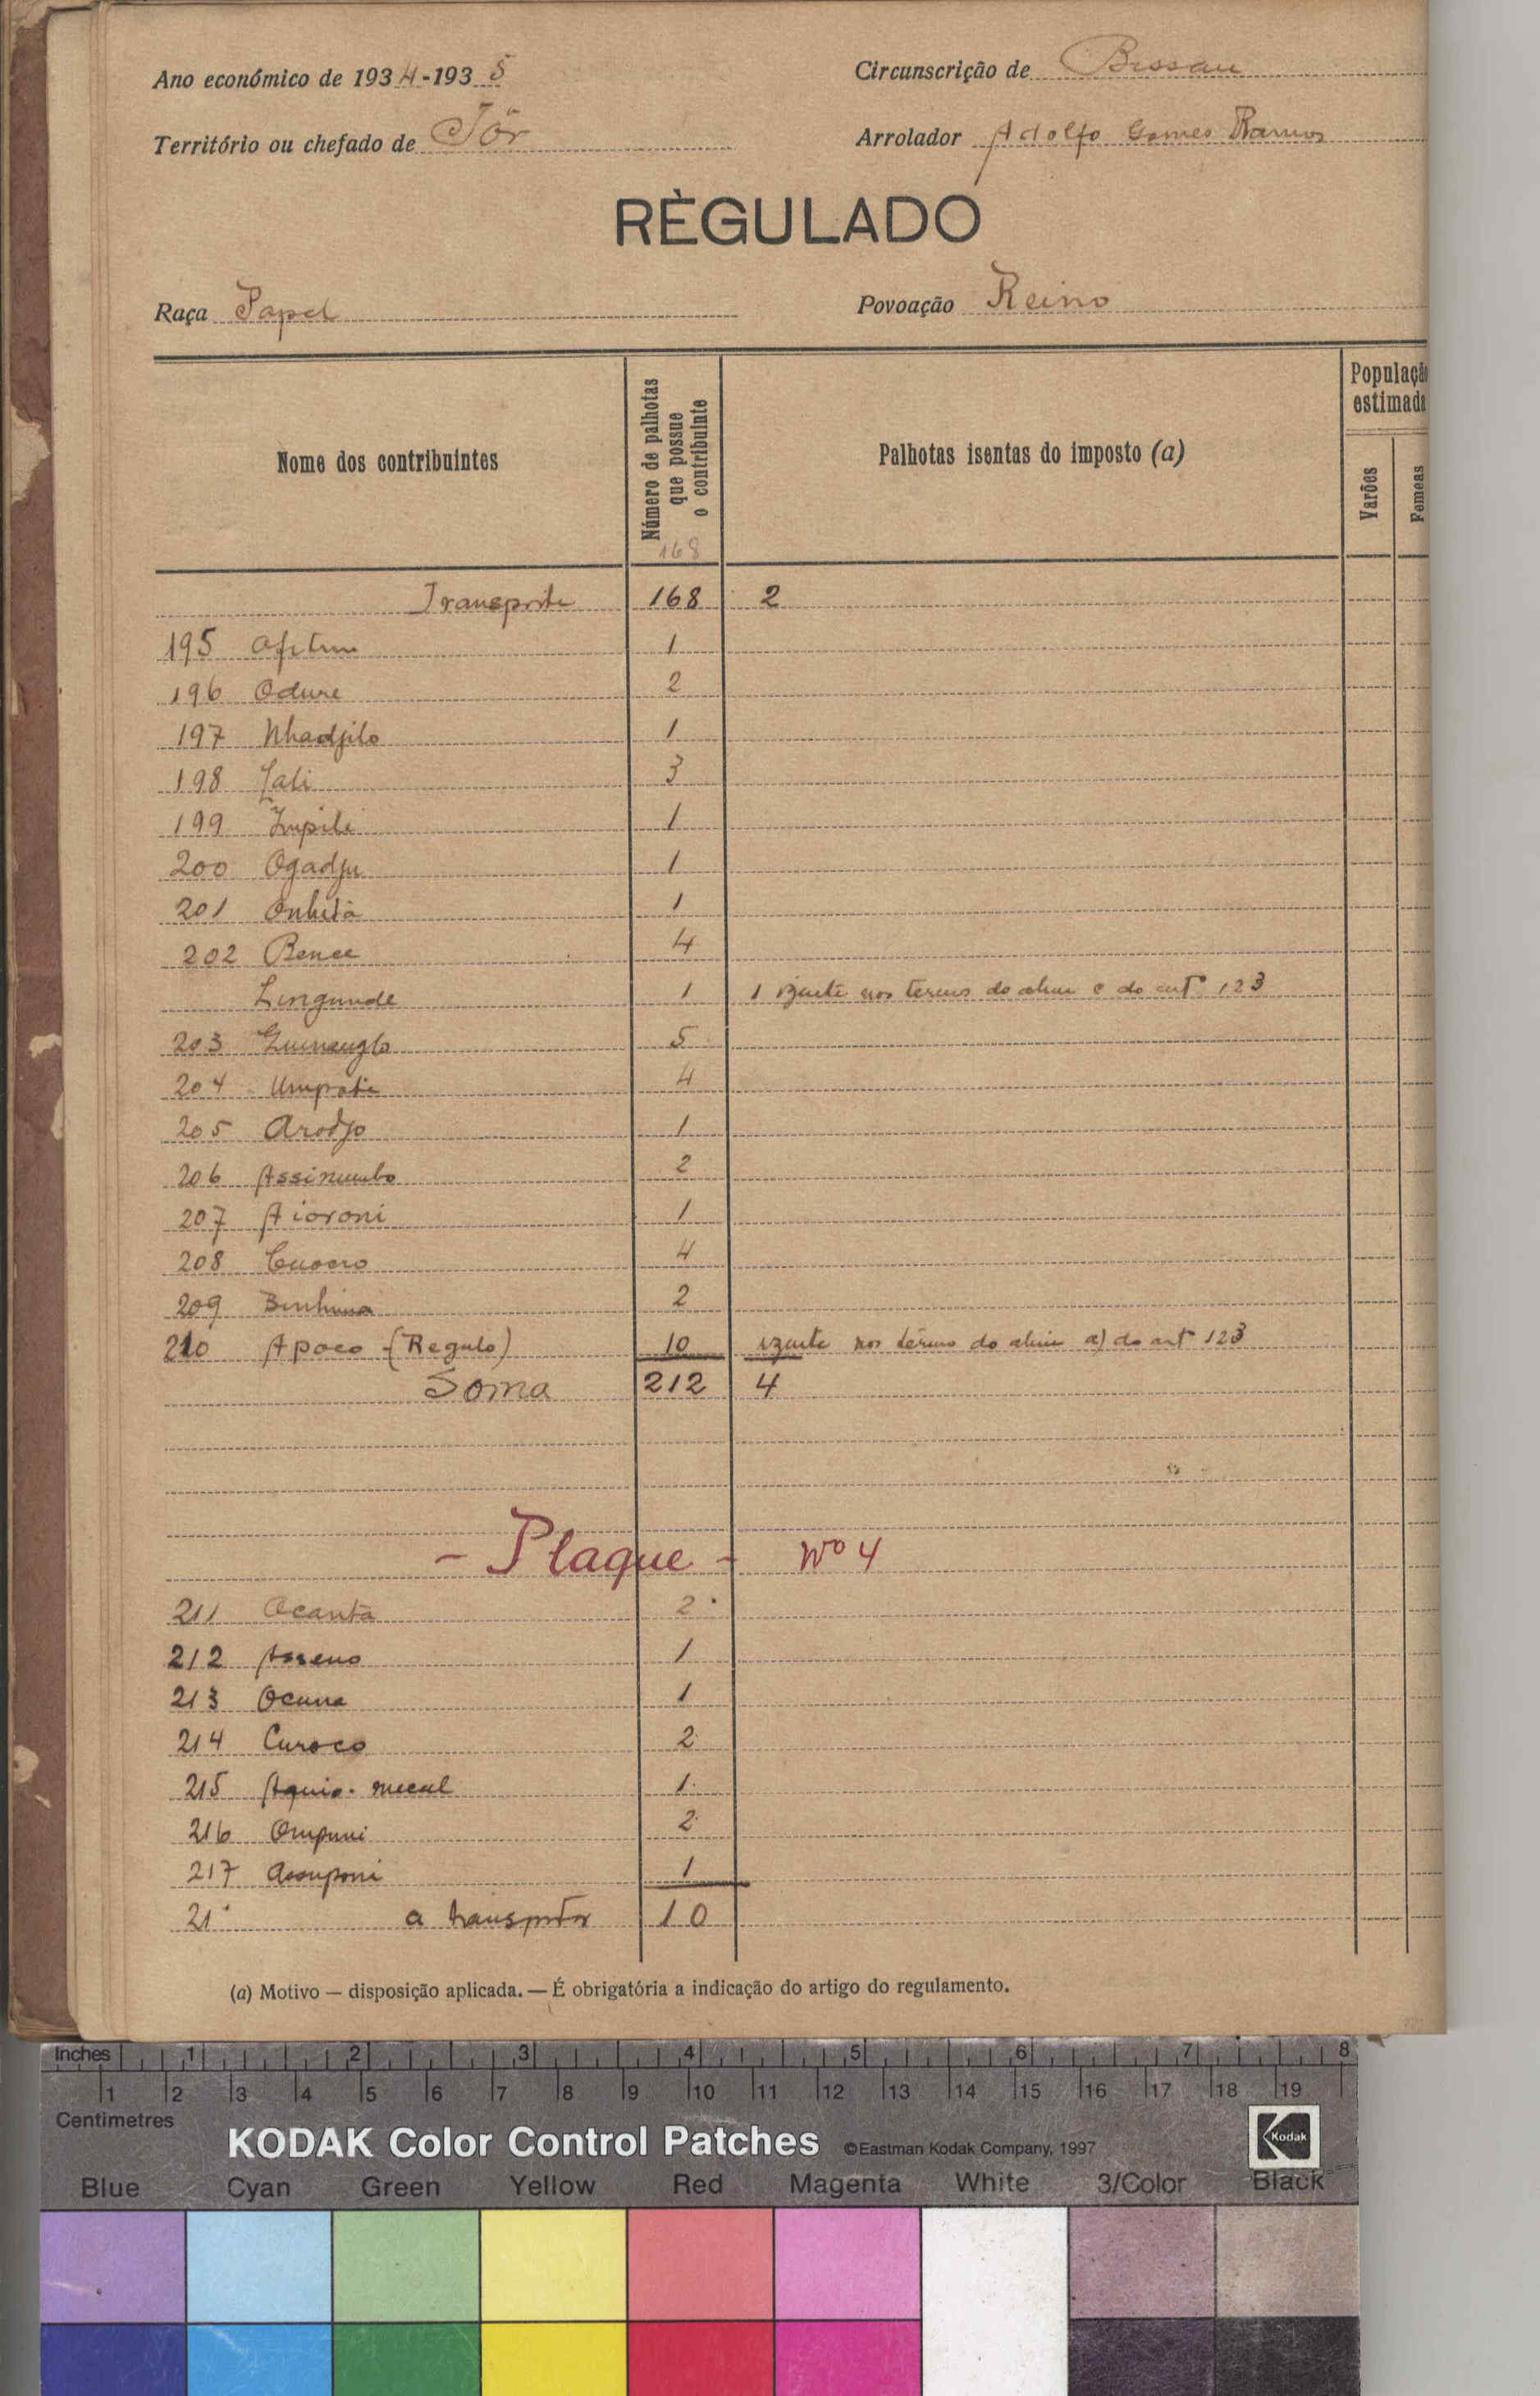 Ano económico de 1934-1935
Circunscrição de Bissau
Território ou chefado de Tôr
Arrolador Adolfo Gomes Ramos
RÈGULADO
Raça Papel
Povoação Reino
Nome dos contribuintes
Número de palhotas que possue o contribuinte
168
Palhotas isentas do imposto (a)
Populaçã
estimada
Varões
Femeas
Transporte 168 2
195 1
196 Odure 2
197 Nhadjilo 1
198 Lali 3
199 Impili 1
200 Ogadju 1
201 Onhitá 1
202 Bence 4
Lingunde 1 1 izente nos termos do alinea c do artº 123
203 5
204 Umpatie 4
205 Arodjo 1
206 Assinumbo 2
207 Aioroni 1
208 4
209 Binhima 2
210 Apoco - (Regulo) 10 izente nos têrmos do alinea a) do artº 123
Soma 212 4
- Plaque - Nº 4
211 Ocantá 2
212 1
213 Ocuna 1
214 Curoco 2
215 1
216 Ompuni 2
217 Assuponi 1
21 a transportar 10
(a) Motivo — disposição aplicada. — É obrigatória a indicação do artigo do regulamento.
Inches 1 2 3 4 5 6 7 8
1 2 3 4 5 6 7 8 9 10 11 12 13 14 15 16 17 18 19
Centimetres
KODAK Color Control Patches ©Eastman Kodak Company, 1997 Kodak
Blue Cyan Green Yellow Red Magenta White 3/Color Black